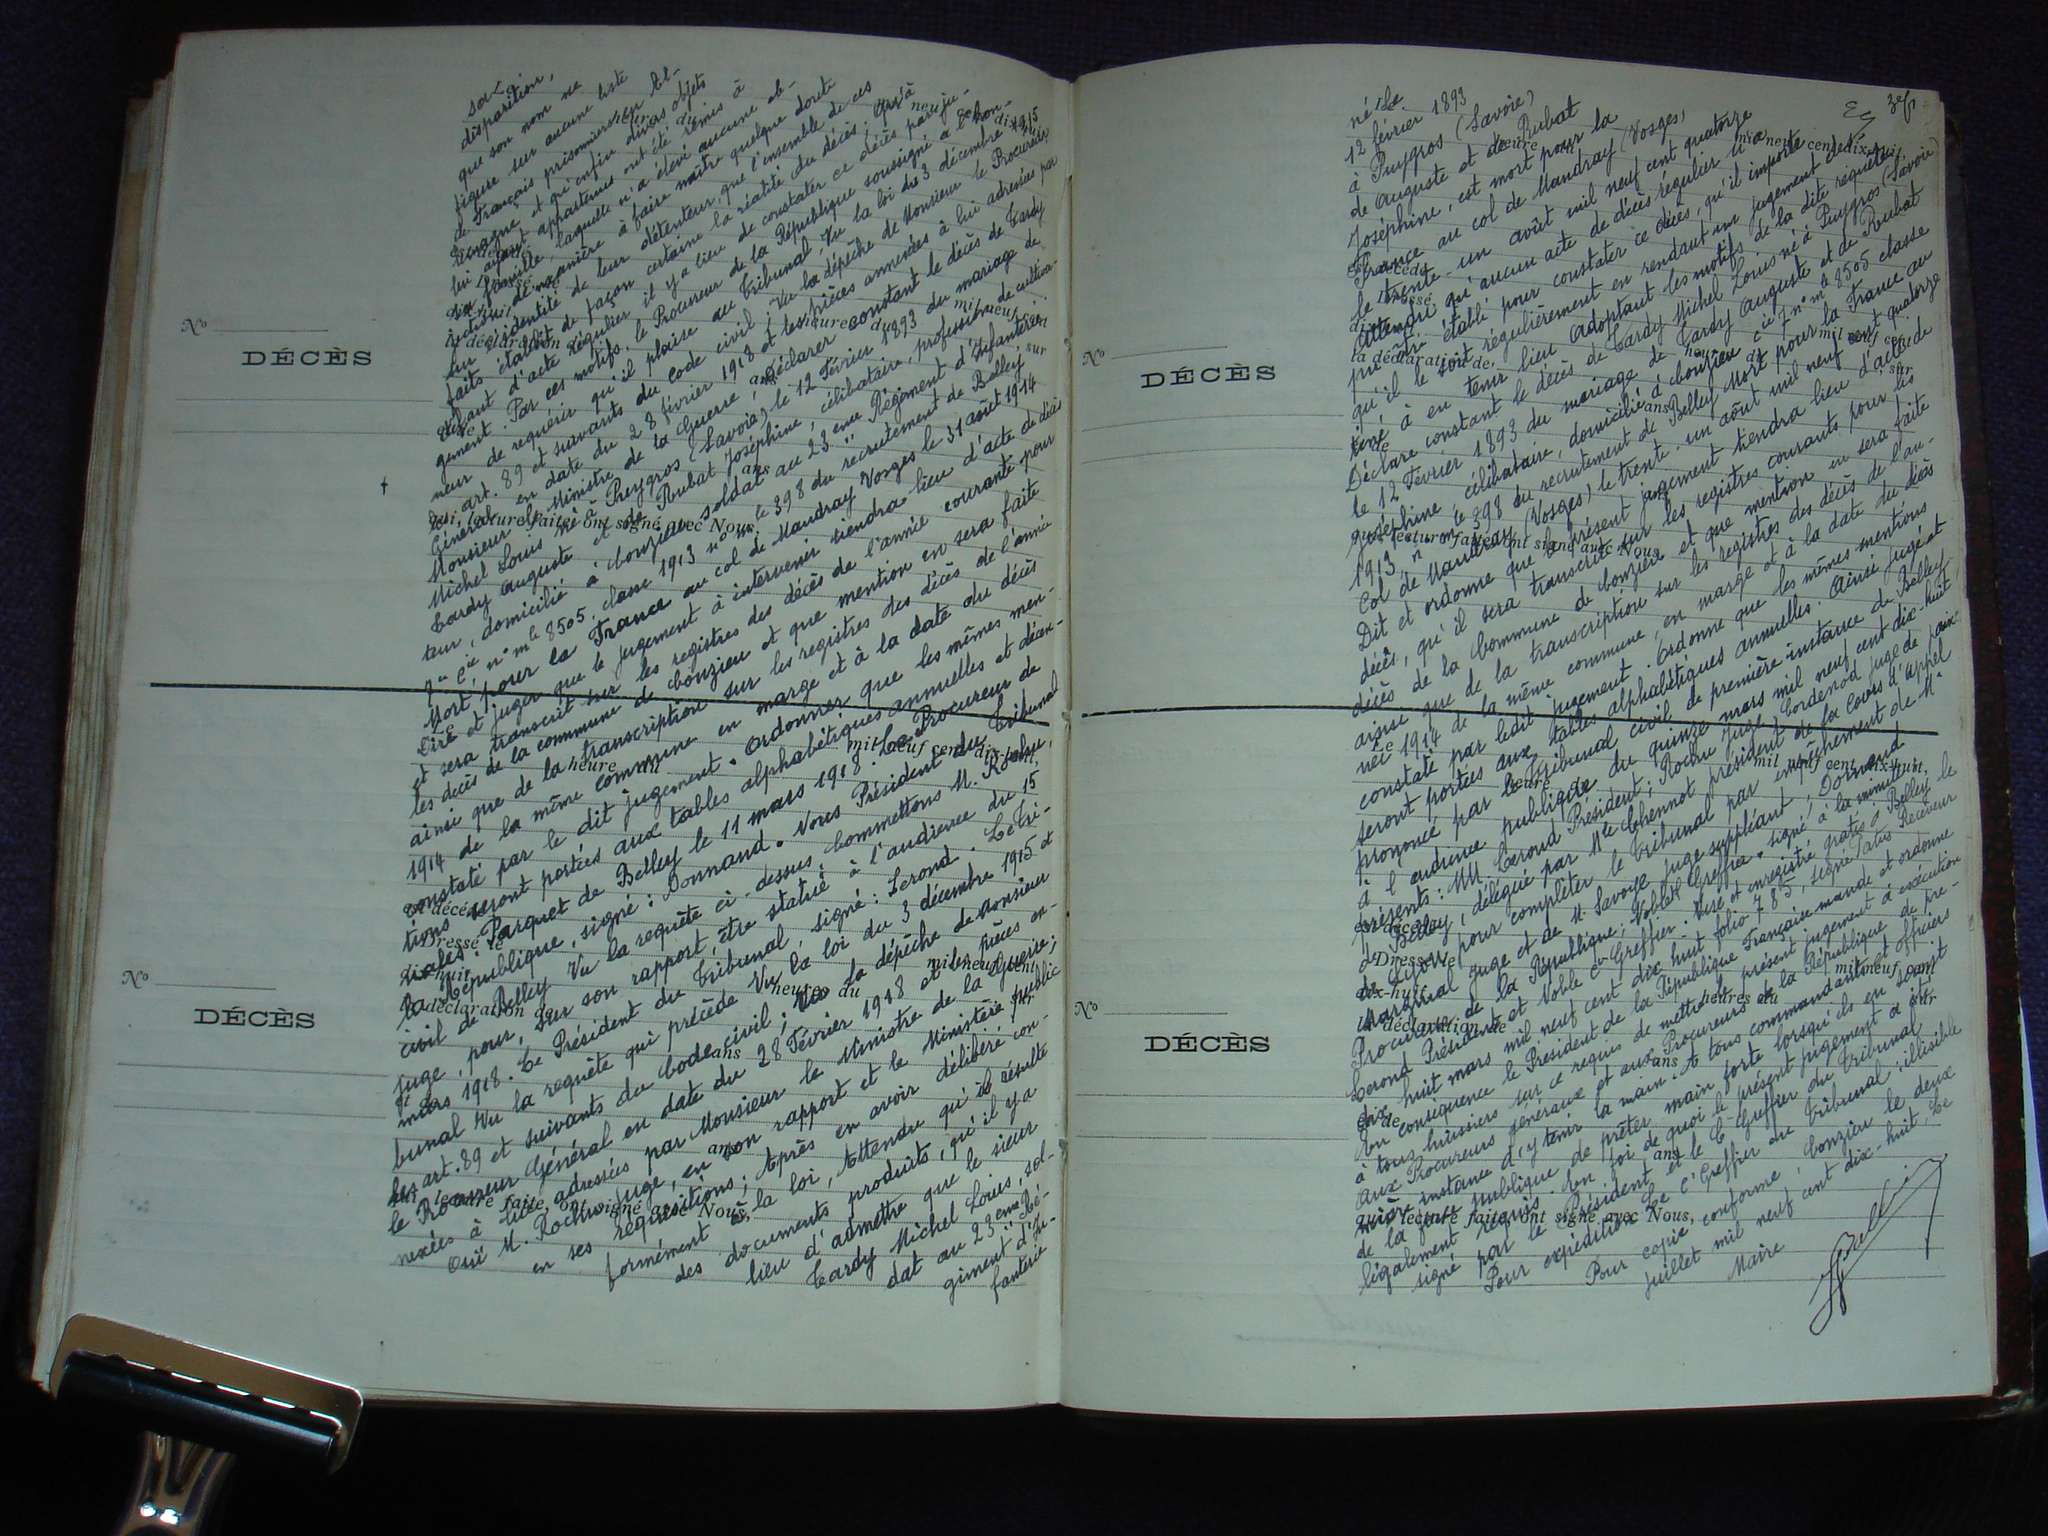 sa
disparition,
que son nom ne
figure sur aucune liste
de Français prisonniers en Al-
lemagne et qu'enfin divers objets
lui ayant appartenus ont été remis à
sa famille, laquelle n'a élevé aucune ob-
jection, de manière à faire naître quelque doute
sur l'identité de leur détenteur, que l'ensemble de ces
faits établit de façon certaine la réalité du décès. Qu'à
défaut d'acte régulier il y a lieu de constater ce décès par ju-
gement. Par ces motifs, le Procureur de la République soussigné a l'hon-
neur de requérir qu'il plaise au Tribunal, Vu la loi du 3 décembre 1915
les art. 89 et suivants du code civil; Vu la dépêche de Monsieur le Procureur
Général en date du 28 février 1918 et les pièces annexées à lui adressées par
Monsieur le Ministre de la Guerre, déclarer constant le décès de Tardy
Michel Louis né à Puygros (Savoie) le 12 Février 1893 du mariage de
Tardy Auguste et de Rubat Joséphine, célibataire, profession de cultiva-
teur, domicilié à Conzieu soldat au 23eme Régiment d'Infanterie,
7e Cie n° mle 8505, classe 1913 n° mle 398 du recrutement de Belley
Mort pour la France au col de Mandray Vosges le 31 août 1914
Dire et juger que le jugement à intervenir tiendra lieu d'acte de décès
et sera transcrit sur les registres des décès de l'année courante pour
les décès de la commune de Conzieu et que mention en sera faite
ainsi que de la transcription sur les registres des décès de l'année
1914 de la même commune en marge et à la date du décès
constaté par le dit jugement. Ordonner que les mêmes men-
tions seront portées aux tables alphabétiques annuelles et décen-
nales. Parquet de Belley le 11 mars 1918. Le Procureur de
la République, signé: Donnand. Nous Président du Tribunal
civil de Belley Vu la requête ci-dessus, Commettons M. Rochu,
juge, pour, sur son rapport être statué à l'audience du 15
mars 1918. Le Président du Tribunal, signé: Cerond. Le Tri-
bunal Vu la requête qui précède Vu la loi du 3 décembre 1915 et
les art. 89 et suivants du Code civil; Vu la dépêche de Monsieur
le Procureur Général en date du 28 Février 1918 et les pièces an-
nexées à lui adressées par Monsieur le Ministre de la Guerre;
Ouï M. Rochu juge, en son rapport et le Ministère public
en ses réquisitions; Après en avoir délibéré con-
formément à la loi, Attendu qu'il résulte
des documents produits, qu'il y a
lieu d'admettre que le sieur
Tardy Michel Louis, sol-
dat au 23eme Ré-
giment d'In-
fanterie
N°
DÉCÈS
qui, lecture faite, ont signé avec Nous,
heure du
mil neuf cent dix-huit,
est décédé
Dressé le
dix-huit
la déclaration de
heures du
mil neuf cent
ans
sur
N°
DÉCÈS
ans
qui, lecture faite, ont signé avec Nous,
né le
12 février 1893
à Puygros (Savoie)
de Auguste et de Rubat
Joséphine, est mort pour la
France au col de Mandray (Vosges,
le trente-un août mil neuf cent quatorze
Attendu qu'aucun acte de décès régulier n'a
pu être établi pour constater ce décès, qu'il importe
qu'il le soit régulièrement en rendant un jugement des-
tiné à en tenir lieu Adoptant les motifs de la dite requête
Déclare constant le décès de Tardy Michel Louis né à Puygros (Savoie)
le 12 Février 1893 du mariage de Tardy Auguste et de Rubat
Joséphine, célibataire, domicilié à Conzieu 7 Cie n° mle 8505 classe
1913 n° mle 398 du recrutement de Belley Mort pour la France au
Col de Mandray (Vosges) le trente-un août mil neuf cent quatorze
Dit et ordonne que le présent jugement tiendra lieu d'acte de
décès, qu'il sera transcrit sur les registres courants pour les
décès de la Commune de Conzieu et que mention en sera faite
ainsi que de la transcription sur les registres des décès de l'an-
née 1914 de la même commune, en marge et à la date du décès
constaté par ledit jugement. Ordonne que les mêmes mentions
seront portées aux tables alphabétiques annuelles. Ainsi jugé et
prononcé par le Tribunal civil de première instance de Belley
à l'audience publique du quinze mars mil neuf cent dix-huit
présents: MM. Cerond Président; Rochu Juge, Cordenod juge de paix
de Belley, délégué par Mle Chennot président de la Cour d'Appel
de Lyon pour compléter le Tribunal par empêchement de Mr
Marginal juge et de M. Savoye juge suppléant, Donnand
Procureur de la République, Noblet Greffier. signé à la minute:
Cerond Président et Noble C. Greffier. Visé et enregistré gratis à Belley le
dix huit mars mil neuf cent dix huit folio 785, signé: Receveur
En conséquence le Président de la République Française mande et ordonne
à tous huissiers sur ce requis de mettre le présent jugement à exécution
aux Procureurs Généraux et aux Procureurs de la République de pre-
mière instance d'y tenir la main. A tous commandants et officiers
de la force publique de prêter main forte lorsqu'ils en seront
légalement requis. En foi de quoi le présent jugement a été
signé par le Président et le C. Greffier du Tribunal
Pour expédition Le C. Greffier du Tribunal: illisible
Pour copie conforme, Conzieu le deux
juillet mil neuf cent dix-huit, Le
Maire
N°
DÉCÈS
la déclaration de
qui, lecture faite, ont signé avec Nous,
heure
mil neuf cent dix-huit,
est décédé
Dressé le
dix-huit
la déclaration de
heures du
mil neuf cent
ans
sur
N°
DÉCÈS
ans
qui, lecture faite, ont signé avec Nous,